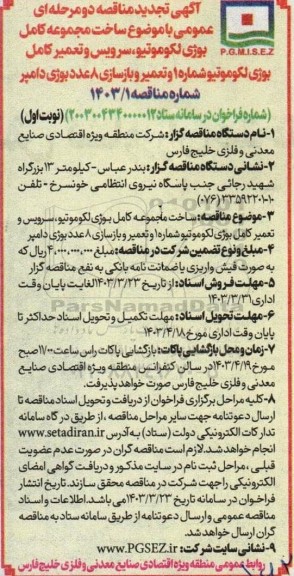 آگهی تجدید مناقصه دو مرحله ای
عمومی با موضوع ساخت مجموعه کامل
بوژی لکوموتیو، سرویس و تعمیر کامل
P.G.M.I.S.E.Z
بوژی لکوموتیو شماره ۱ و تعمیر و بازسازی ۸ عدد بوژی دامپر
شماره مناقصه ۱۴۰۳/۱
(شماره فراخوان در سامانه ستاد ۲۰۰۳۰۰۴۳۴۰۰۰۰۰۱۲) (نوبت اول)
۱-نام دستگاه مناقصه گزار: شرکت منطقه ویژه اقتصادی صنایع
معدنی و فلزی خلیج فارس
۲-نشانی دستگاه مناقصه گزار: بندرعباس- کیلومتر ۱۳ بزرگراه
شهید رجائی جنب پاسگاه نیروی انتظامی خونسرخ - تلفن
۱۰-۳۳۵۹۲۲۰۱ (۰۷۶)
۳-موضوع مناقصه: ساخت مجموعه کامل بوژی لکوموتیو، سرویس و
تعمیر کامل بوژی لکوموتیو شماره ۱ و تعمیر و بازسازی ۸ عدد بوژی دامپر
۴-مبلغ و نوع تضمین شرکت در مناقصه: مبلغ ۴,۰۰۰,۰۰۰,۰۰۰ ریال که
به صورت فیش واریزی یا ضمانت نامه بانکی به نفع مناقصه گزار
۵-مهلت فروش اسناد: از تاریخ ۱۴۰۳/۳/۲۳ لغایت پایان وقت
اداری ۱۴۰۳/۳/۳۱
۶-مهلت تحویل اسناد: مهلت تکمیل و تحویل اسناد حداکثر تا
پایان وقت اداری مورخ ۱۴۰۳/۴/۱۸
۷-زمان و محل بازگشایی پاکات: بازگشایی پاکات راس ساعت ۱۱/۰۰ صبح
مورخ ۱۴۰۳/۴/۱۹ در سالن کنفرانس منطقه ویژه اقتصادی صنایع
معدنی و فلزی خلیج فارس صورت خواهد پذیرفت.
۸-کلیه مراحل برگزاری فراخوان از دریافت و تحویل اسناد مناقصه تا
ارسال دعوتنامه جهت سایر مراحل مناقصه ، از طریق درگاه سامانه
تدارکات الکترونیکی دولت (ستاد) به آدرس www.setadiran.ir
انجام خواهد شد. لازم است مناقصه گران در صورت عدم عضویت
قبلی ، مراحل ثبت نام در سایت مذکور و دریافت گواهی امضای
الکترونیکی را جهت شرکت در مناقصه محقق سازند. تاریخ انتشار
فراخوان در سامانه تاریخ ۱۴۰۳/۳/۲۳ می باشد. اطلاعات و اسناد
مناقصه عمومی و ارسال دعوتنامه از طریق سامانه ستاد به مناقصه
گران ارسال خواهد شد.
۹-نشانی سایت شرکت: www.PGSEZ.ir
روابط عمومی منطقه ویژه اقتصادی صنایع معدنی و فلزی خلیج فارس